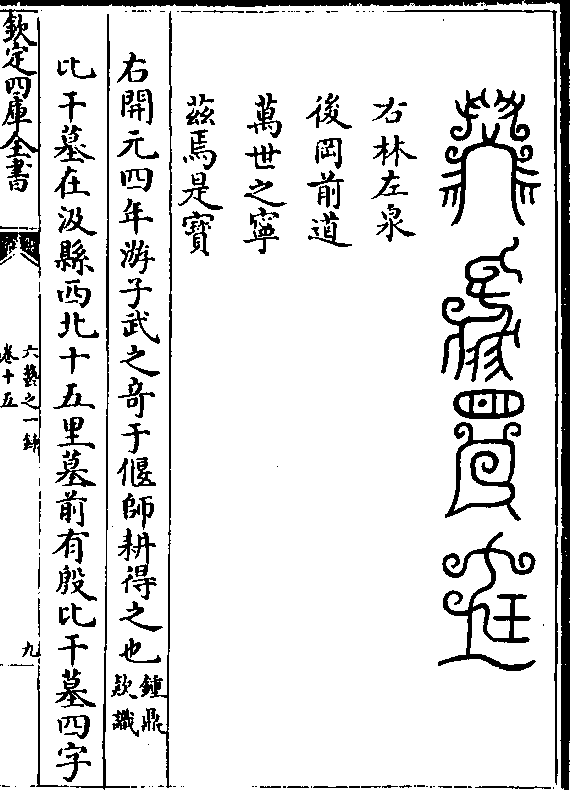 右林左泉
後岡前道
萬世之寧
茲焉是寶
右開元四年游子武之奇于偃師耕得之也鍾鼎欵識
比干墓在汲縣西北十五里墓前有殷比干墓四字
欽定四庫全書
六藝之一錄
卷十五
九